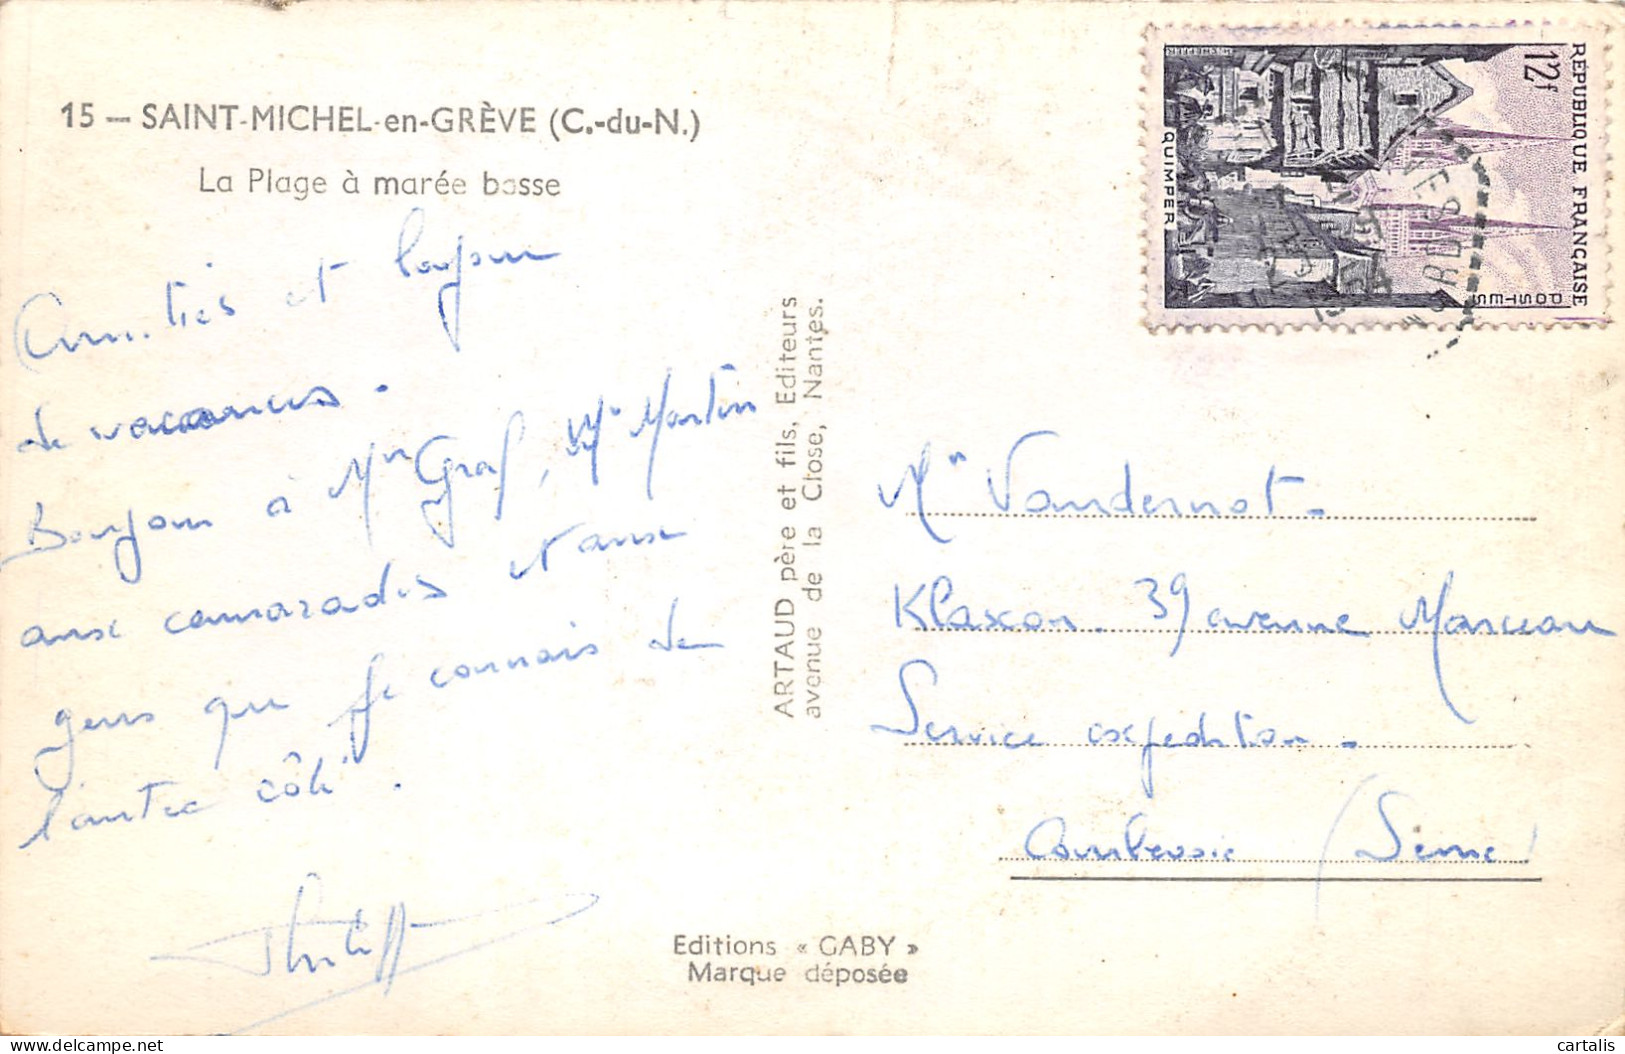 15 – SAINT-MICHEL-en-GRÈVE (C.-du-N.)
La Plage à marée basse
Amitiés et
de vacances.
Bonjour à Mr Graf, Mr Martin
aux camarades et aux
gens que je connais de
l'autre côté.
Philippe
ARTAUD père et fils, Editeurs
avenue de la Close, Nantes.
Editions « GABY »
Marque déposée
RÉPUBLIQUE FRANÇAISE
12f
POSTES
QUIMPER
Mr Vandernot.
Klaxon. 39 avenue Marceau
Service expedition.
Courbevoie (Seine)
cartalis